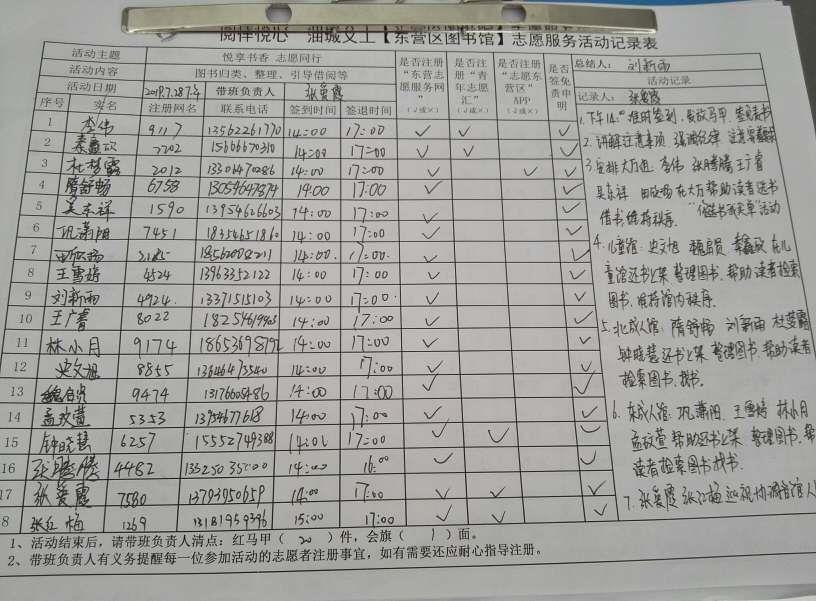 阅伴悦心 油城义工【东营区图书馆】志愿服务活动记录表
活动主题 悦享书香 志愿同行 是否注册“东营志愿服务网”（√或×） 是否注册“青年志愿汇”（√或×） 是否注册“志愿东营区”APP（√或×） 是否签免责申明 总结人：刘新雨
活动内容 图书归类、整理、引导借阅等 活动记录
活动日期 2019.7.28.7年 带班负责人 张爱霞 记录人：张爱霞
序号 实名 注册网名 联系电话 签到时间 签退时间
1 李伟 9117 13562261770 14:00 17:00 √ √ √
2 秦鑫欣 7202 15606670310 14:00 17:00 √ √ √
3 杜梦露 2012 13301470286 14:00 17:00 √ √ √
4 隋舒畅 6758 13059647874 14:00 17:00 √ √
5 吴东祥 1590 13954626603 14:00 17:00 √ √
6 巩潇阳 7451 18354651860 14:00 17:00 √ √
7 田欣杨 14:00 17:00 √ √
8 王雪婷 4524 13963352122 14:00 17:00 √ √
9 刘新雨 4924 13371515103 14:00 17:00 √ √
10 王广睿 8022 14:00 17:00 √ √
11 林小月 9174 14:00 17:00 √ √
12 史文旭 8855 13646473540 14:00 17:00 √ √
13 9474 13176608486 14:00 17:00 √ √
14 孟政萱 5353 13754677618 14:00 17:00 √ √
15 钟晓慧 6257 15552749388 14:01 17:00 √ √ √
16 张腾腾 4482 14:00 16:00 √ √
17 张爱霞 7580 13793950659 14:00 17:00 √ √ √
8 张红梅 1269 13181959396 15:00 17:00 √ √ √
1、下午14:00准时签到，发放马甲，签免责书
2、讲解注意事项，强调纪律，注意
3、安排大厅组：李伟 张腾腾 王广睿
吴东祥 田欣杨在大厅帮助读者还书
借书，维持秩序。活动
4、儿童馆：史文旭 秦鑫欣 在儿
童馆还书上架 整理图书，帮助读者检索
图书，维持馆内秩序。
5、北成人馆：隋舒畅 刘新雨 杜梦露
钟晓慧还书上架 整理图书，帮助读者
检索图书，找书。
6、东成人馆：巩潇阳 王雪婷 林小月
孟政萱帮助还书上架 整理图书，帮
读者检索图书找书。
7、张爱霞 张红梅 巡视协调各馆人
1、活动结束后，请带班负责人清点：红马甲（ 20 ）件，会旗（ 1 ）面。
2、带班负责人有义务提醒每一位参加活动的志愿者注册事宜，如有需要还应耐心指导注册。